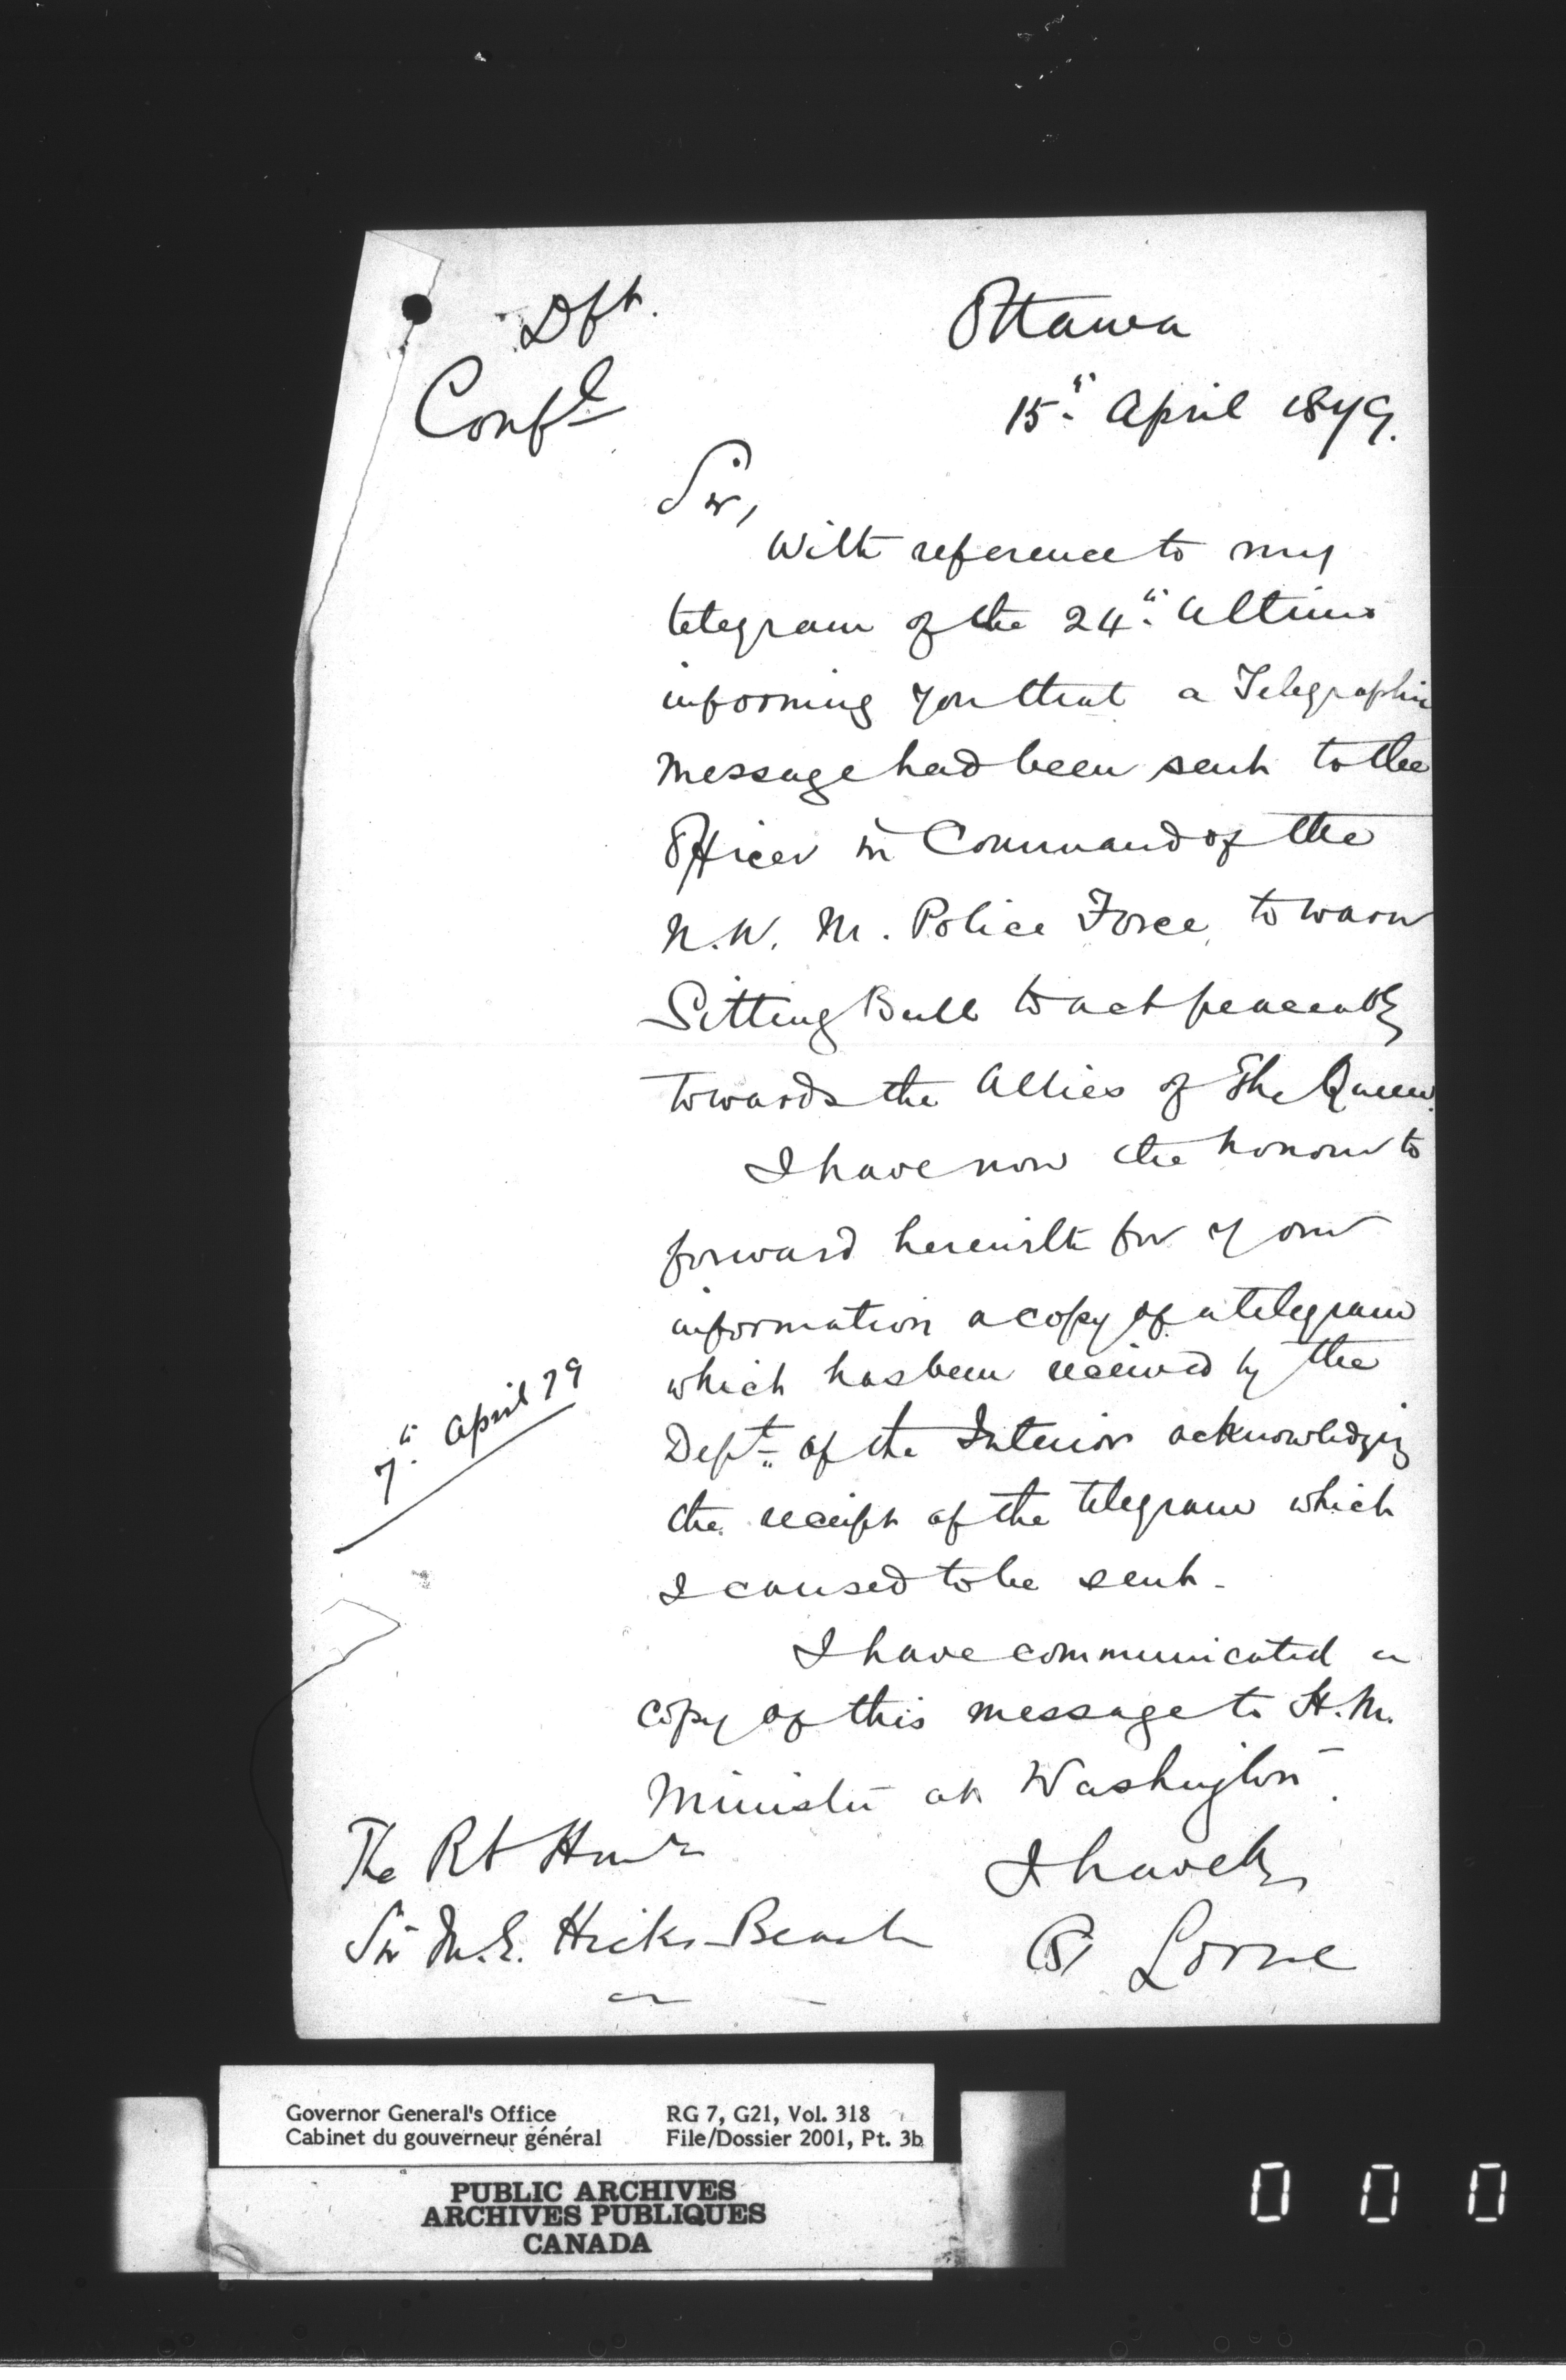 Dft.
Ottawa
Confl
15th April 1879.
Sir,
With reference to my
telegram of the 24th Ultimo
informing you that a Telegraphic
message had been sent to the
Officer in Command of the
N.W. M. Police Force, to warn
Sitting Bull to act peaceably
towards the Allies of The Queen.
I have now the honour to
forward herewith for your
information a copy of a telegram
7th April 79
which has been received by the
Dept. of the Interior acknowledging
the receipt of the telegram which
I caused to be sent -
I have communicated a
copy of this message to H.M.
Minister at Washington.
The Rt Honble
I have &c
Sir M.E. Hicks-Beach
(S) Lorne
Governor General's Office RG 7, G21, Vol. 318
Cabinet du gouverneur général File/Dossier 2001, Pt. 3b
PUBLIC ARCHIVES
ARCHIVES PUBLIQUES
CANADA
0 0 0